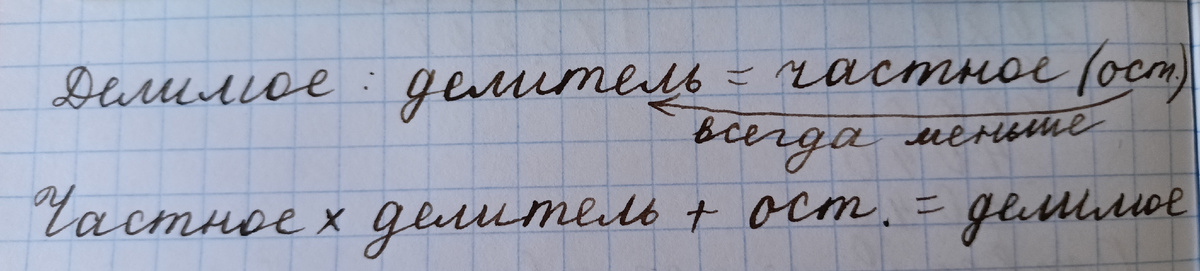 Делимое : делитель = частное (ост.)
всегда меньше
Частное х делитель + ост. = делимое